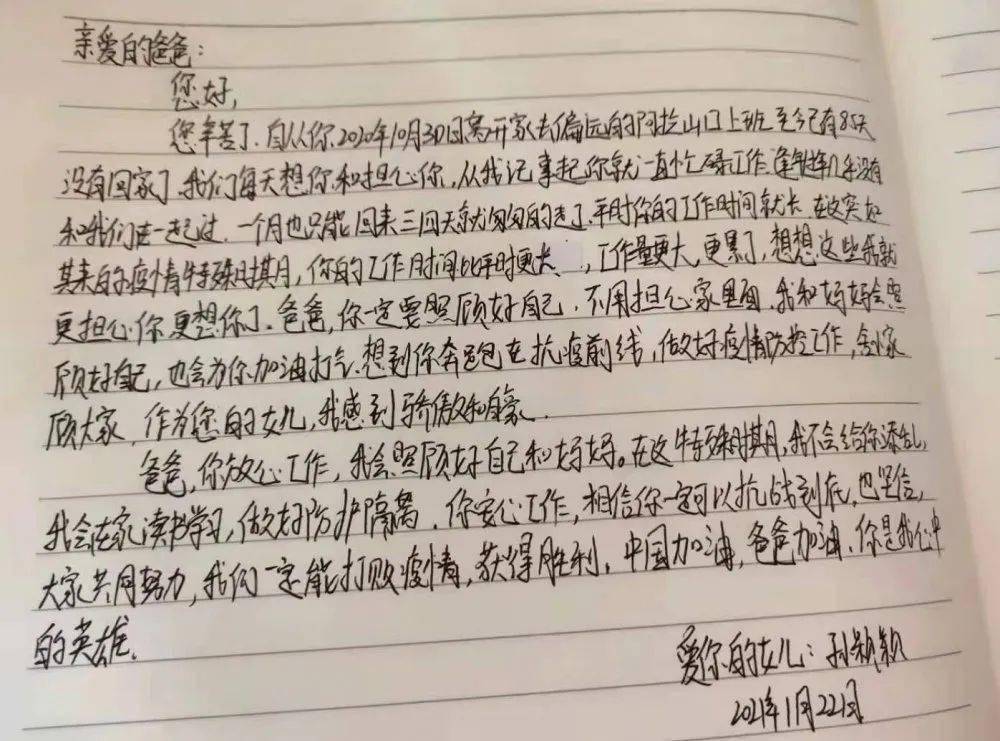 亲爱的爸爸：
您好，
您辛苦了．自从你2020年10月30日离开家去偏远的阿拉山口上班至今已有85天
没有回家了．我们每天想你和担心你，从我记事起你就一直忙碌工作．逢年过节几乎没有
和我们在一起过．一个月也只能回来三四天就匆匆的走了．平时你的工作时间就长．在这突如
其来的疫情特殊时期，你的工作时间比平时更长，工作量更大，更累了，想想这些我就
更担心你更想你了．爸爸，你一定要照顾好自己．不用担心家里面．我和妈妈会照
顾好自己，也会为你加油打气．想到你奔跑在抗疫前线，做好疫情防控工作，舍小家
顾大家，作为您的女儿，我感到骄傲和自豪．
爸爸，你放心工作，我会照顾好自己和妈妈。在这特殊时期，我不会给你添乱，
我会在家读书学习，做好防护隔离．你安心工作，相信你一定可以抗战到底，也坚信，
大家共同努力，我们一定能打败疫情，获得胜利．中国加油，爸爸加油．你是我心中
的英雄．
爱你的女儿：孙颖颖
2021年1月22日